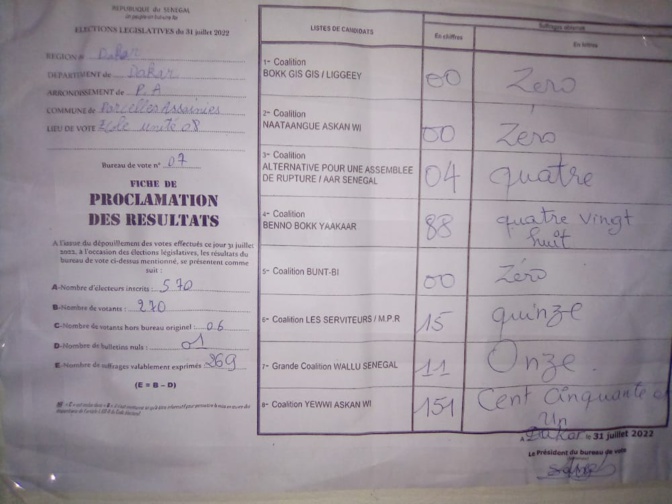 REPUBLIQUE DU SENEGAL
ELECTIONS LEGISLATIVES du 31 juillet 2022
REGION de Dakar
DEPARTEMENT de Dakar
ARRONDISSEMENT de P.A
COMMUNE de Parcelles Assainies
LIEU DE VOTE Ecole unité 08
Bureau de vote n° 07
FICHE DE
PROCLAMATION
DES RESULTATS
A l'issue du dépouillement des votes effectués ce jour 31 juillet
2022, à l'occasion des élections législatives, les résultats du
bureau de vote ci-dessus mentionné, se présentent comme
suit :
A-Nombre d'électeurs inscrits : 570
B-Nombre de votants : 270
C-Nombre de votants hors bureau originel : 06
D-Nombre de bulletins nuls : 01
E-Nombre de suffrages valablement exprimés 269
(E = B - D)
LISTES DE CANDIDATS
Suffrages obtenus
En chiffres
En lettres
1- Coalition
BOKK GIS GIS / LIGGEEY
00
Zero
2- Coalition
NAATAANGUE ASKAN WI
00
Zero
3- Coalition
ALTERNATIVE POUR UNE ASSEMBLEE
DE RUPTURE / AAR SENEGAL
04
quatre
4- Coalition
BENNO BOKK YAAKAAR
88
quatre vingt
huit
5- Coalition BUNT-BI
00
Zéro
6- Coalition LES SERVITEURS / M.P.R
15
quinze
7- Grande Coalition WALLU SENEGAL
11
Onze
8- Coalition YEWWI ASKAN WI
151
Cent Cinquante et
Un
A Dakar le 31 juillet 2022
Le Président du bureau de vote